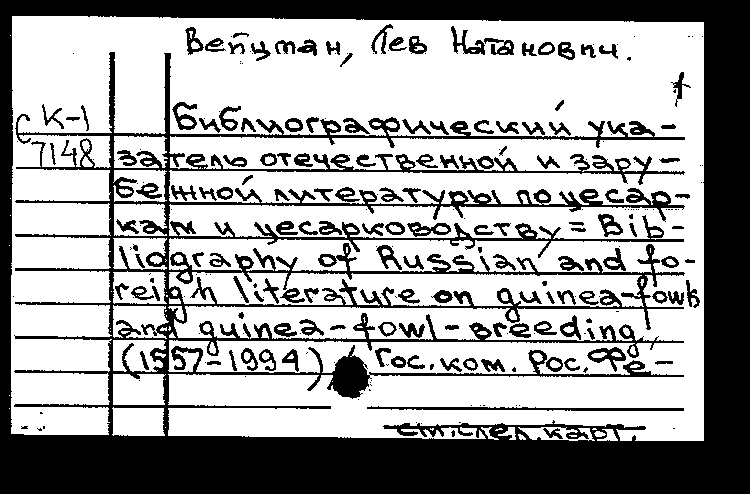 Вейцман, Лев Натанович.
1
С К-1 Библиографический ука-
7148 затель отечественной и зару-
бежной литературы по цесар-
кам и цесарководству = Bib-
liography of Russian and fo-
reigh literature on guinea-fowls
and guinea-fowl-breeding,
(1557-1994) / Гос. ком. Рос. Фе-
см. след. карт.